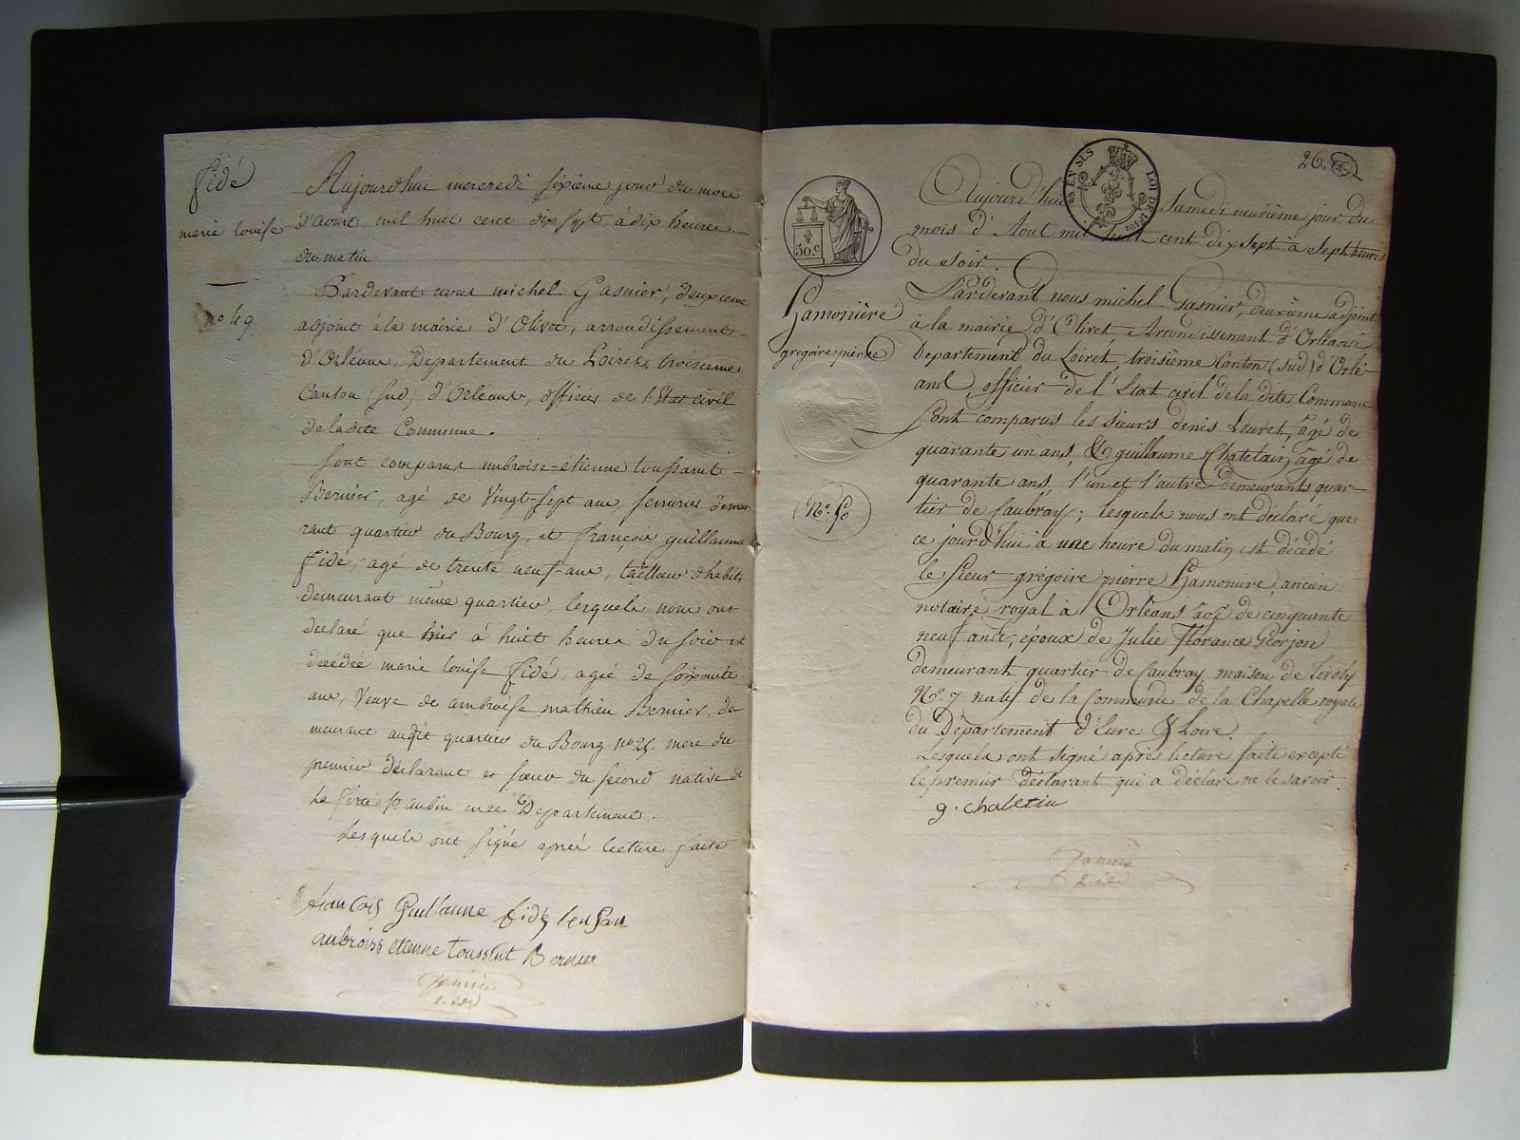 fidé
marie louise
no 49
Aujourdhui mercredi sixieme jour du mois
d'aout mil huit cent dix sept à dix heures
du matin
Pardevant nous michel Gasnier, deuxieme
adjoint à la mairie d'Olivet, arrondissement
d'Orléans, Departement du Loiret, troisieme
Canton (sud) d'Orléans, officier de l'Etat civil
de ladite Commune.
Sont comparus ambroise-étienne toussaint
Bernier, agé de Vingt-sept ans serrurier demeu
rant quartier du Bourg, et françois guillaume
fidé, agé de trente neuf ans, tailleur d'habits
demeurant même quartier, lesquels nous ont
déclaré que hier à huit heures du soir est
décédée marie louise fidé, agée de soixante
ans, Veuve de ambroise mathieu Bernier, de
meurant audit quartier du Bourg no 25, mere du
premier déclarant et sœur du second native de
la ferté St aubin même Departement.
Lesquels ont signé après lecture faite
francois Guillaume fidé
anbroise etienne toussint Bernier
26.
30.c
LOI DE
Hamonière
gregoire pierre
No. 50
Aujourd'hui Samedi neuvième jour du
mois d'Aout mil huit cent dix sept à Sept heures
du soir.
Pardevant nous michel Gasnier, deuxième adjoint
à la mairie d'Olivet, Arrondissement d'Orléans
Département du Loiret, troisième Canton (sud) d'Orlé-
ans officier de l'Etat civil de la dite Commune
Sont comparus les sieurs denis Leuret, âgé de
quarante un ans, & guillaume Chatelain, âgé de
quarante ans, l'un et l'autre demeurants quar-
tier de Caubray; lesquels nous ont déclaré que
ce jourd'hui à une heure du matin est décédé
le Sieur grégoire pierre Hamonière, ancien
notaire royal à Orléans âgé de cinquante
neuf ans, époux de Julie Florance Glorjon
demeurant quartier de Caubray, maison de
No. 7 natif de la Commune de la Chapelle royale
du Département d'Eure & Loire.
Lesquels ont signé après lecture faite excepté
le premier déclarant qui a déclaré ne le savoir.
g. chaletin